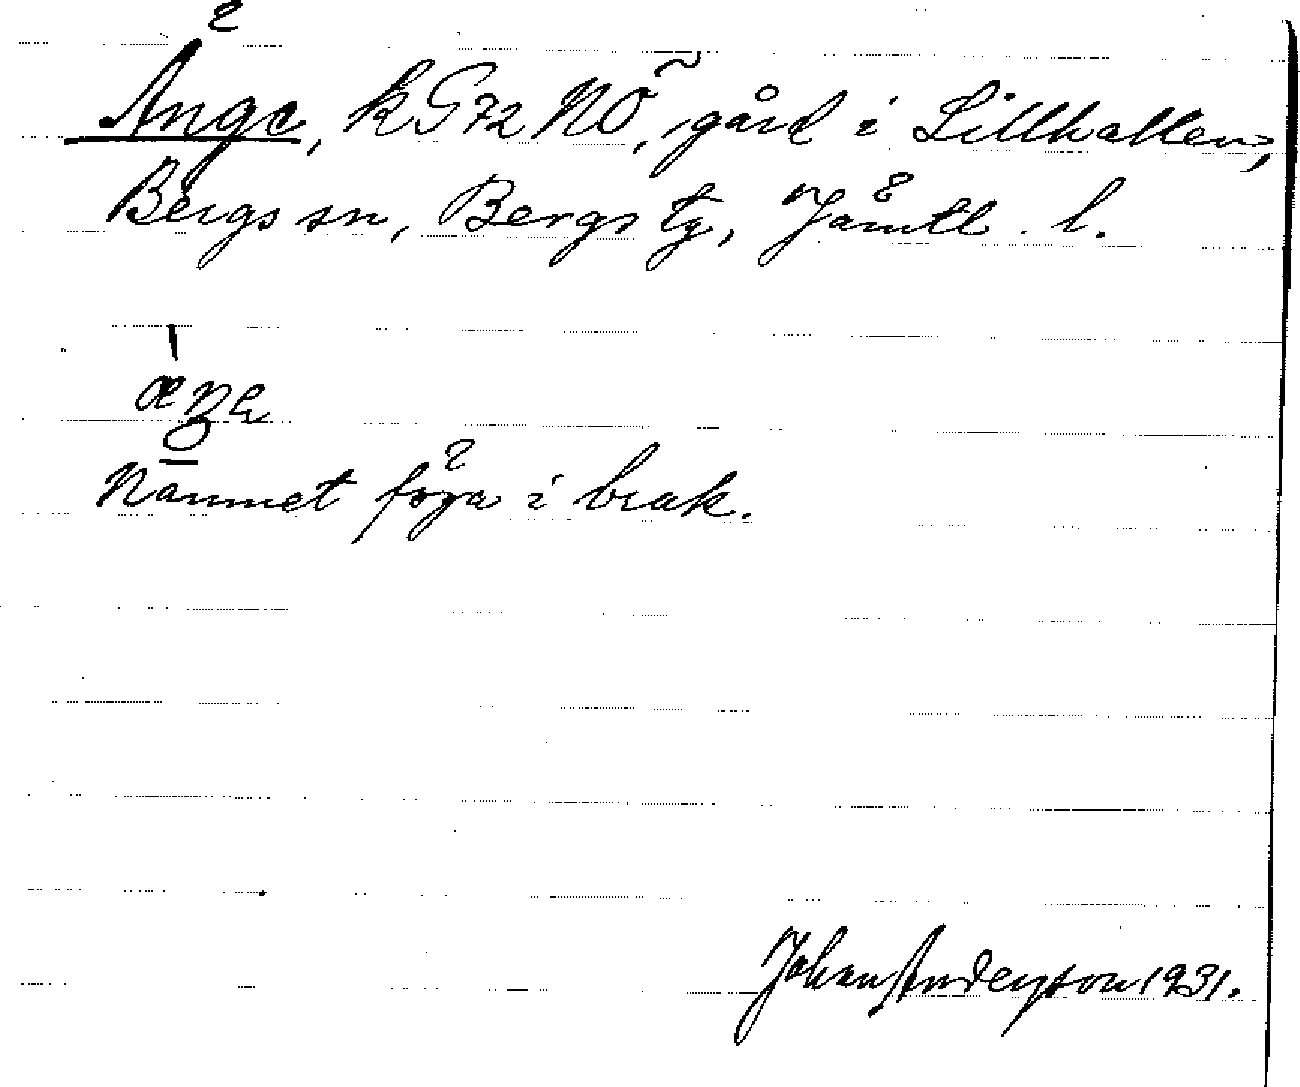 Änge, k G 72 NÖ, gård i Lillhallen,
Bergs sn, Bergs tg, Jämtl. l.
Namnet föga i bruk.
Johan Anderson 1931.